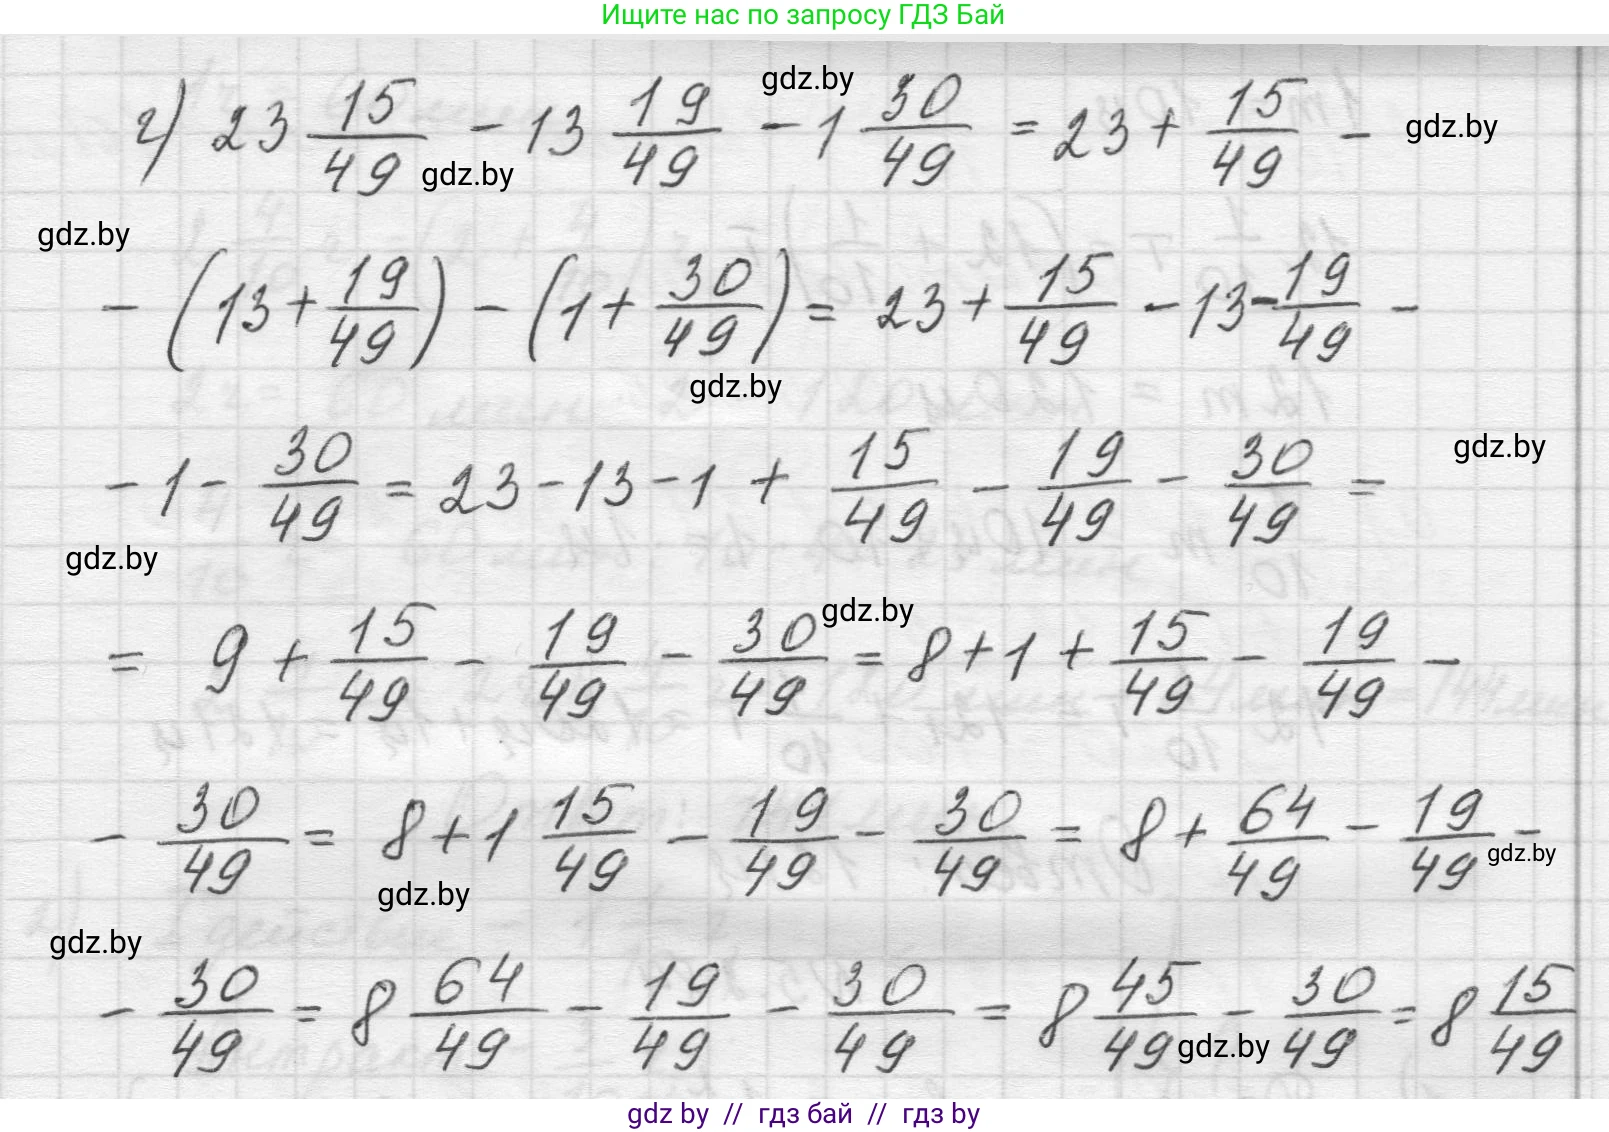 Ищите нас по запросу ГДЗ Бай
г) 23 15/49 - 13 19/49 - 1 30/49 = 23 + 15/49 -
gdz.by
gdz.by
gdz.by
gdz.by
- (13 + 19/49) - (1 + 30/49) = 23 + 15/49 - 13 - 19/49 -
gdz.by
- 1 - 30/49 = 23 - 13 - 1 + 15/49 - 19/49 - 30/49 =
gdz.by
gdz.by
= 9 + 15/49 - 19/49 - 30/49 = 8 + 1 + 15/49 - 19/49 -
gdz.by
- 30/49 = 8 + 1 15/49 - 19/49 - 30/49 = 8 + 64/49 - 19/49 -
gdz.by
gdz.by
gdz.by
- 30/49 = 8 64/49 - 19/49 - 30/49 = 8 45/49 - 30/49 = 8 15/49
gdz.by
gdz by // гдз бай // гдз by